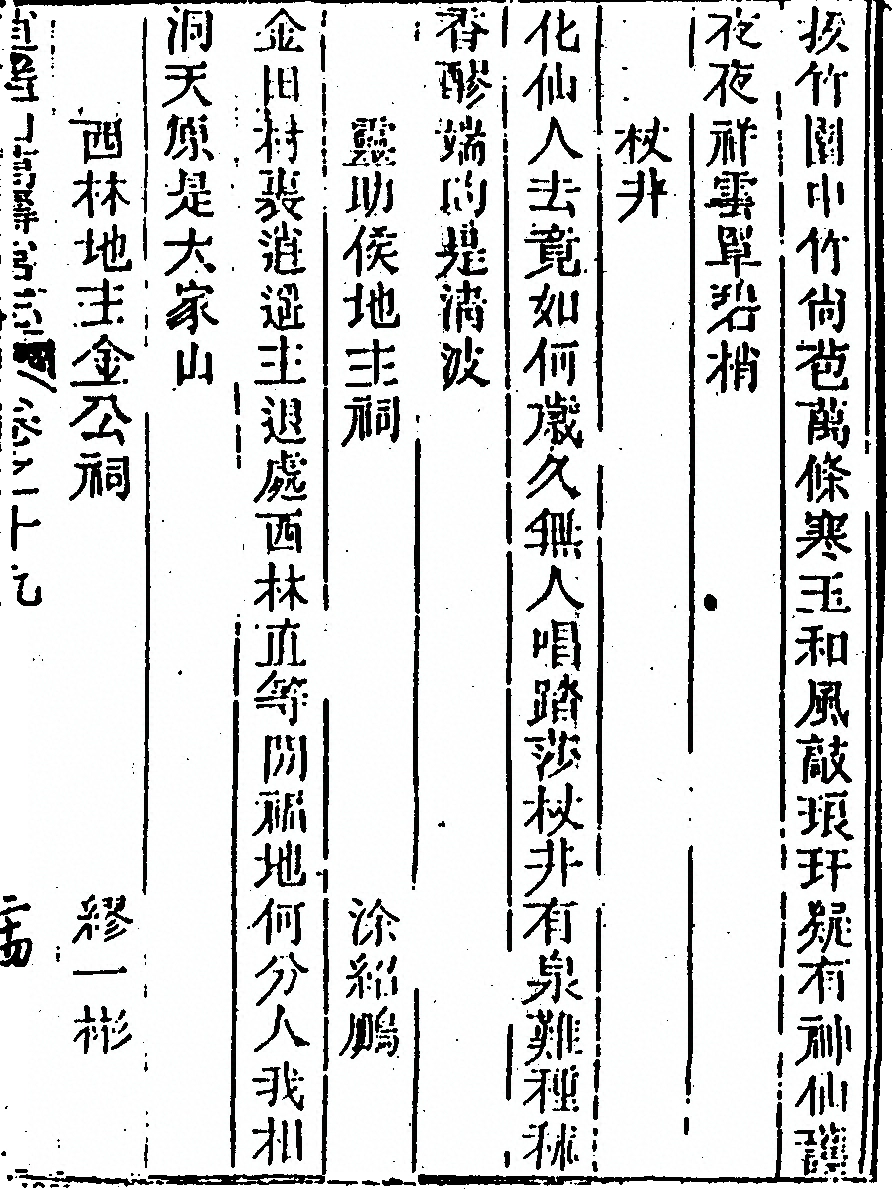 拔竹園中竹尙苞萬條寒玉和風敲琅玕疑有神仙護
夜夜祥雲罩碧梢
杖井
化仙人去竟如何歲久無人唱踏莎杖井有泉難種秫
香醪端的是清波
靈助侯地主祠　涂紹鵬
金田村裏逍遙主退處西林直等閒福地何分人我相
洞天原是大家山
西林地主金公祠　繆一彬
卷之十九